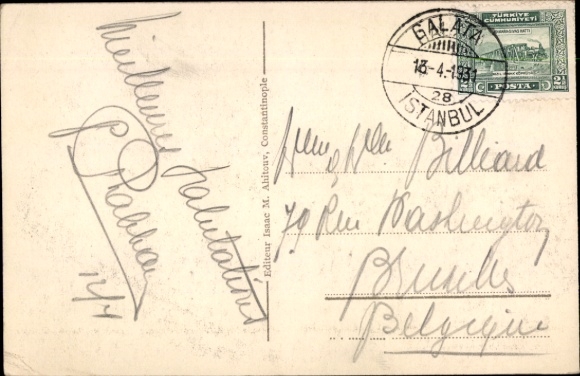 Meilleures
Salutations
12/4
Editeur Isaac M. Ahitouv, Constantinople
GALATA
13-4-1931
28
ISTANBUL
TÜRKİYE
CÜMHURİYETİ
POSTA
2½
Billiard
70 Rue Washington
Bruxelles
Belgique